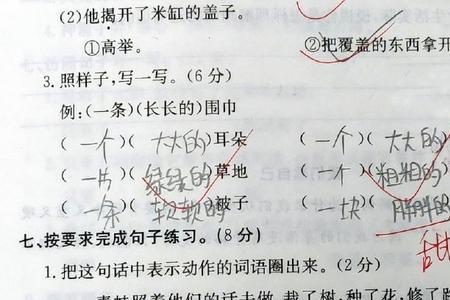 (2)他揭开了米缸的盖子。
①高举。 ②把覆盖的东西拿开
3.照样子,写一写。(6分)
例:(一条)(长长的)围巾
(一个)(大大的)耳朵 (一个)(大大的)
(一片)(绿绿的)草地 (一个)(粗粗的)
(一条)(软软的)被子 (一块)(胖胖的)
七、按要求完成句子练习。(8分)
1.把这句话中表示动作的词语圈出来。(2分)
青蛙照着他们的话去做,栽了树,种了花,修了路